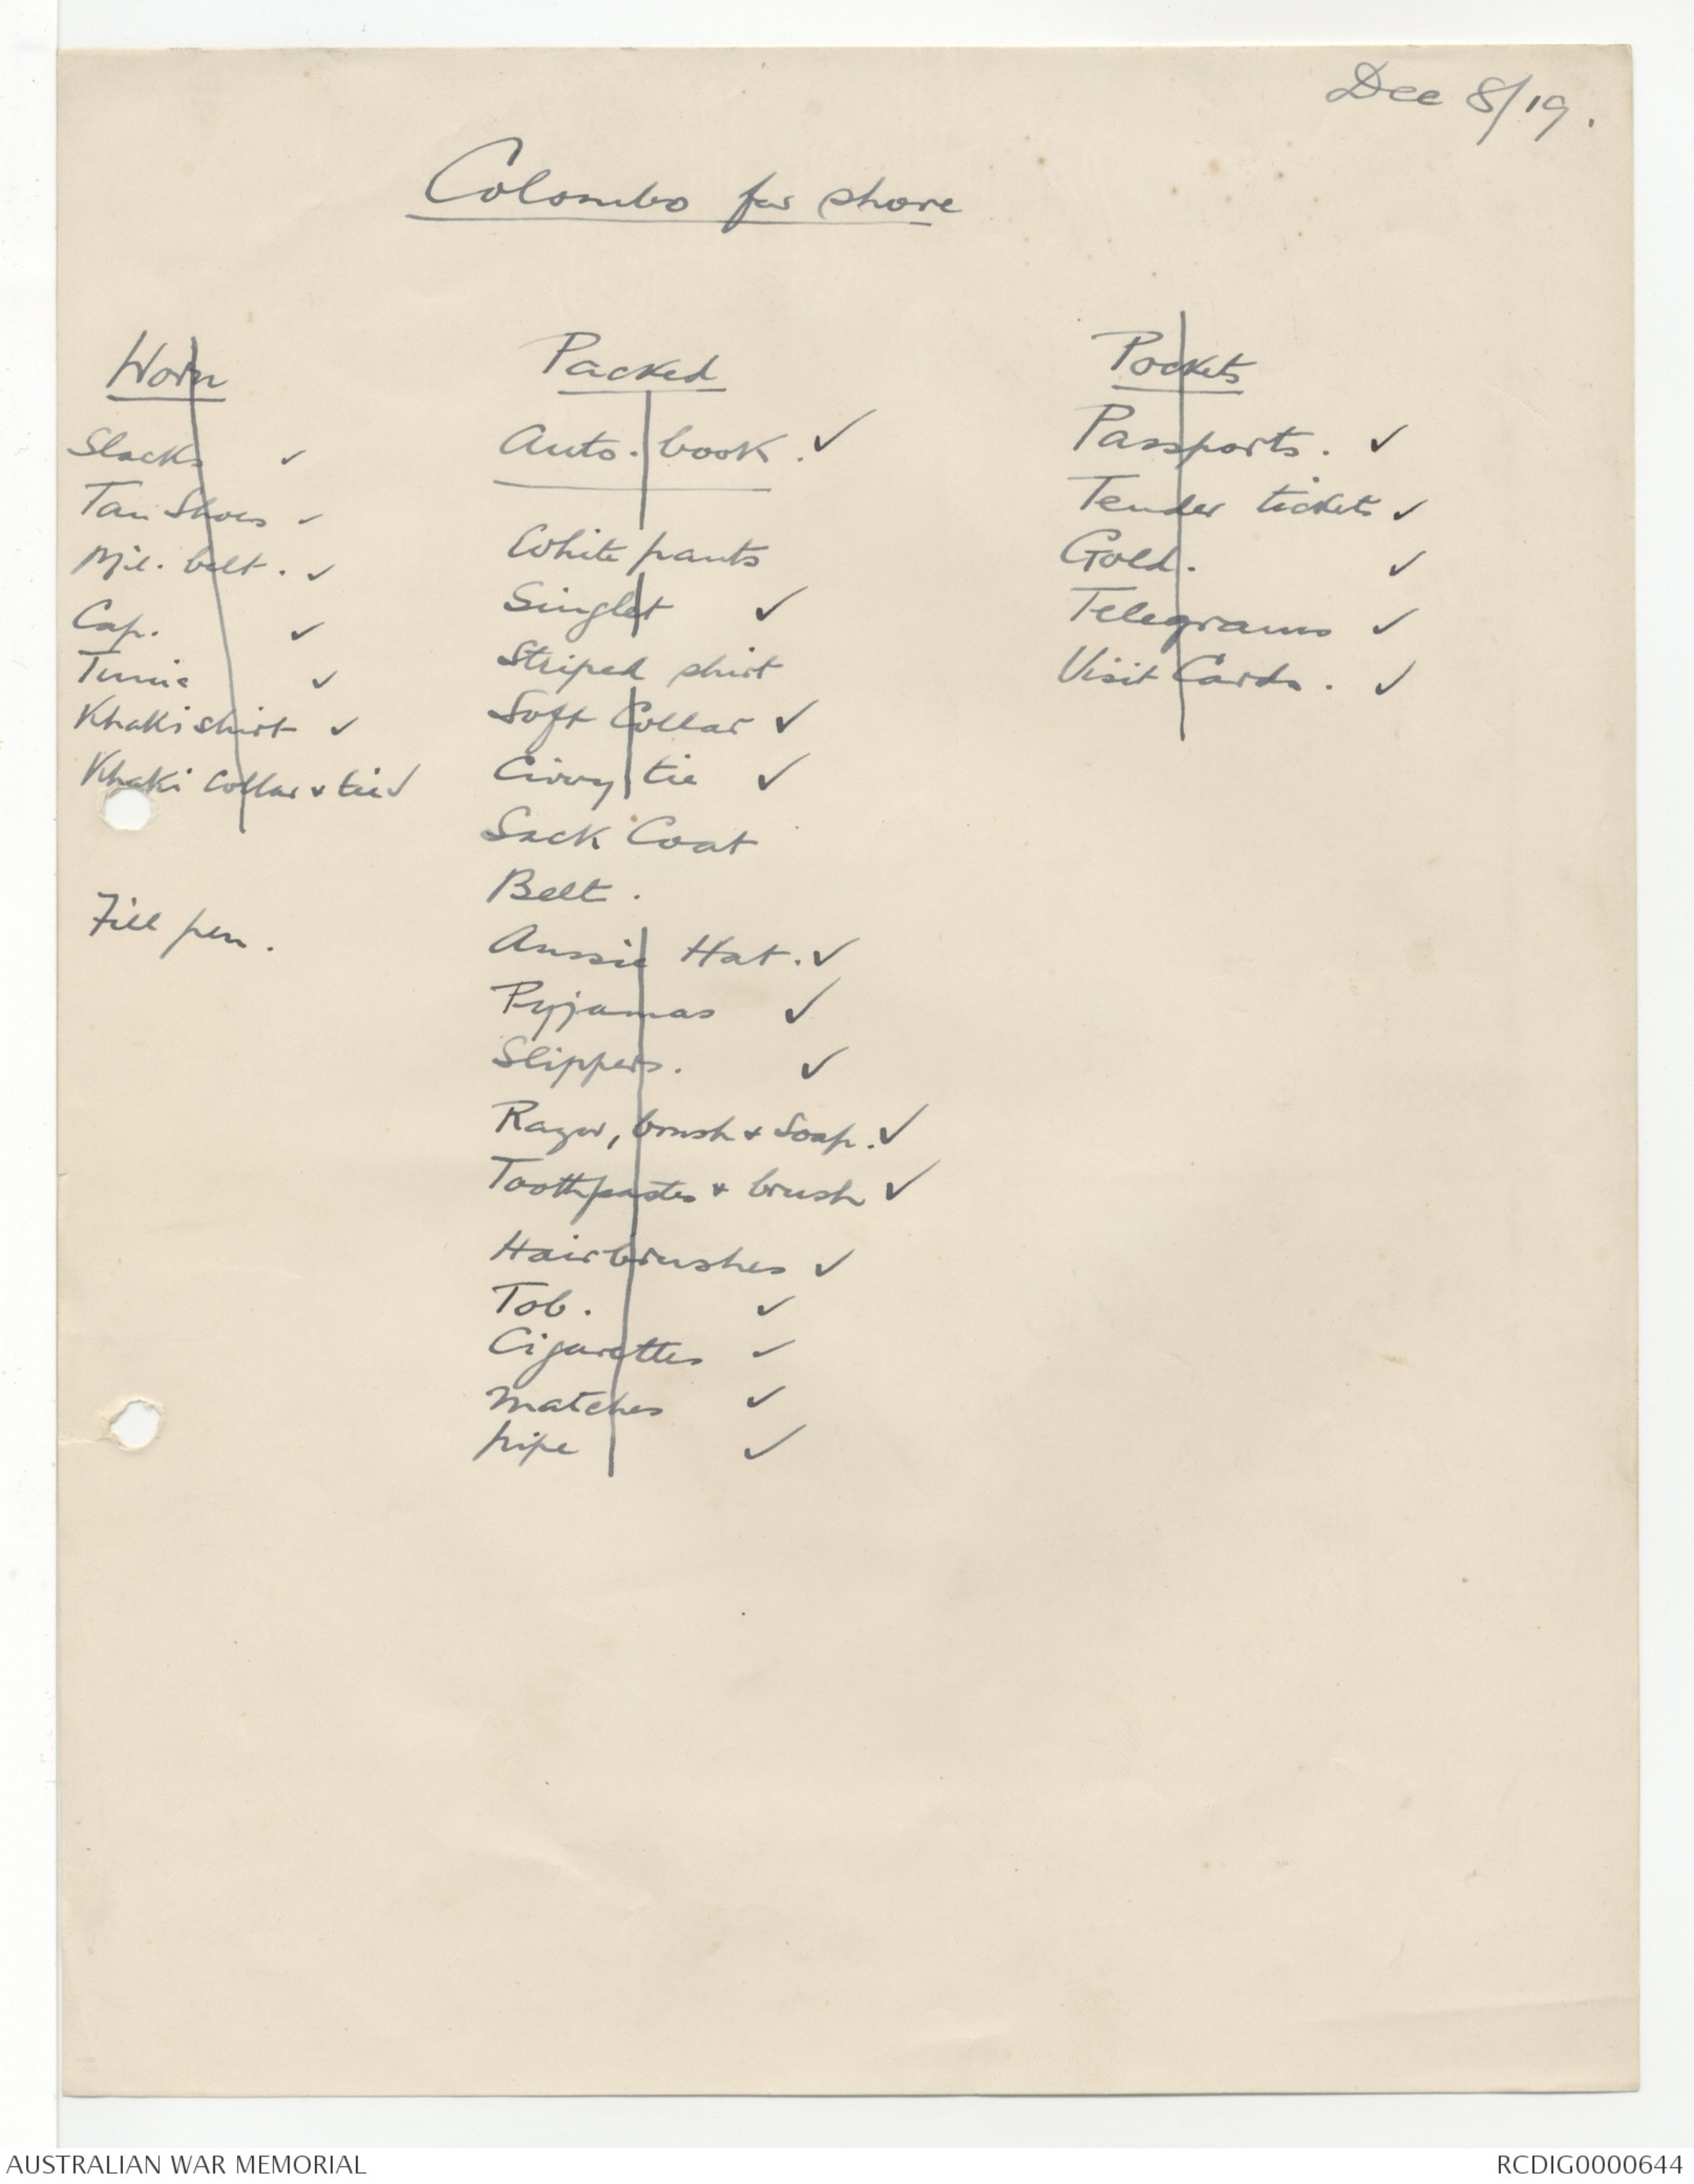 Dec 8/19.
Colombo for shore
Worn
Slacks ✓
Tan Shoes ✓
Mil. belt. ✓
Cap. ✓
Tunic ✓
Khaki shirt ✓
Khaki Collar & tie ✓
Fill pen.
Packed
Auto. book. ✓
White pants
Singlet ✓
Striped shirt
Soft Collar ✓
Civvy tie ✓
Sack Coat
Belt.
Aussie Hat. ✓
Pyjamas ✓
Slippers. ✓
Razor, brush & Soap. ✓
Toothpastes & brush ✓
Hairbrushes ✓
Tob. ✓
Cigarettes ✓
Matches ✓
pipe ✓
Pockets
Passports. ✓
Tender tickets ✓
Gold. ✓
Telegrams ✓
Visit Cards. ✓
AUSTRALIAN WAR MEMORIAL
RCDIG0000644